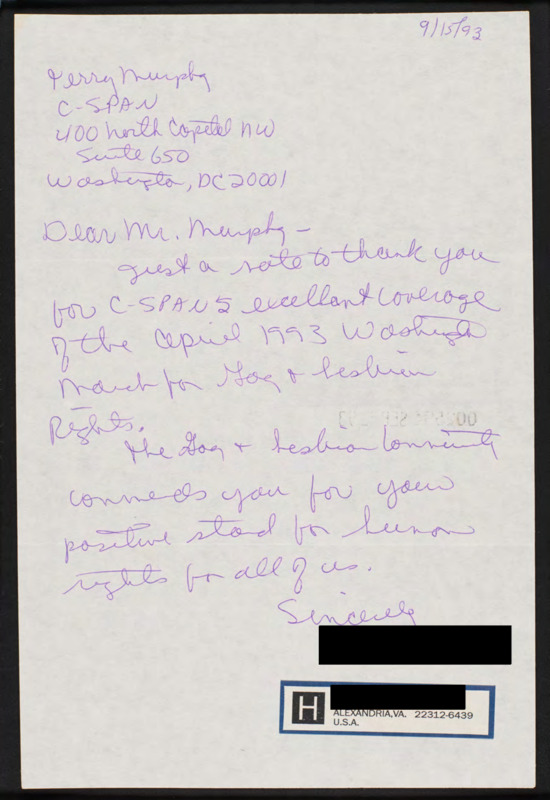 9/15/93
Terry Murphy
C-SPAN
400 North Capitol NW
Suite 650
Washington, DC 20001
Dear Mr. Murphy -
Just a note to thank you
for C-SPAN's excellant coverage
of the April 1993 Washington
March for Gay + Lesbian
Rights.
The Gay + Lesbian Community
commends you for your
positive stand for human
rights for all of us.
Sincerely
H
ALEXANDRIA, VA. 22312-6439
U.S.A.